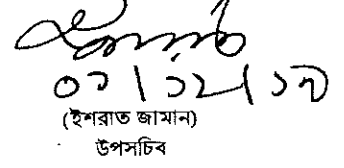 ০১/১২/১৯
(ইশরাত জামান)
উপসচিব